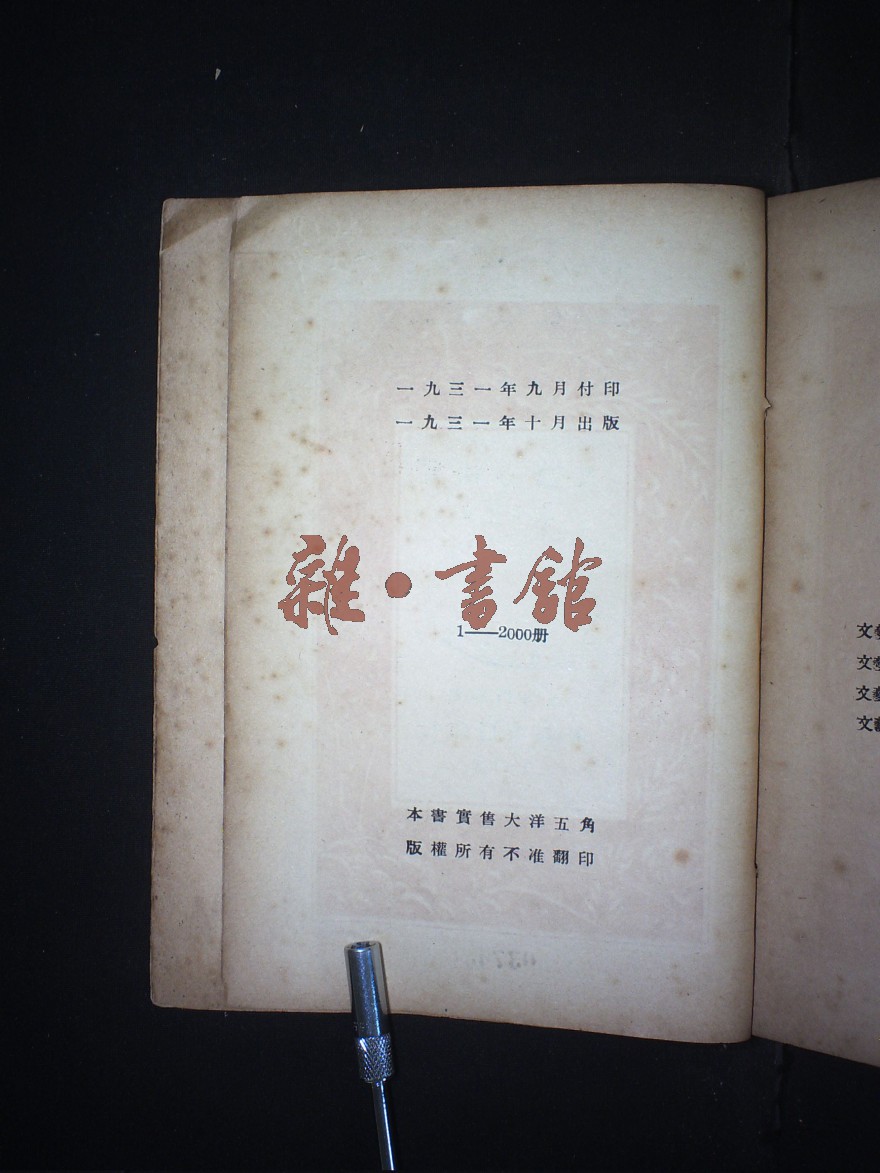 一九三一年九月付印
一九三一年十月出版
雜·書館
1——2000册
本書實售大洋五角
版權所有不准翻印
文藝
文藝
文藝
文藝